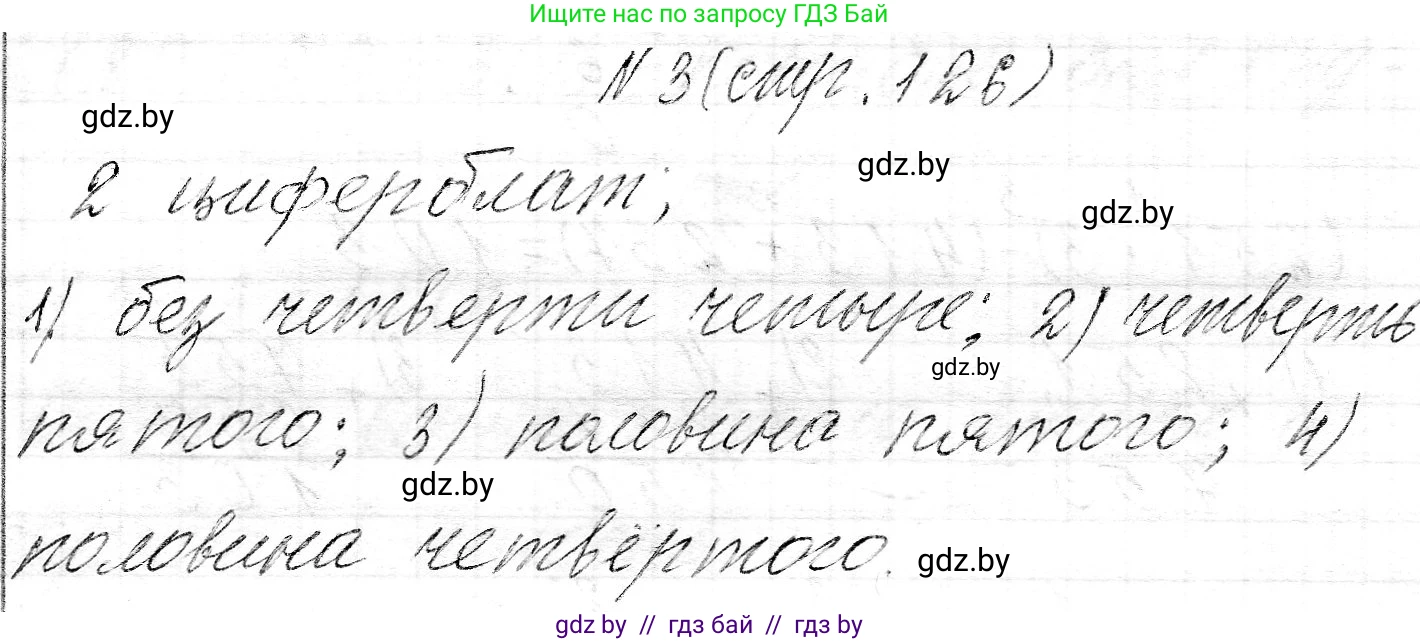 Ищите нас по запросу ГДЗ Бай
N 3 (стр. 126)
gdz.by
2 циферблат;
gdz.by
gdz.by
1) без четверти четыре; 2) четверть
gdz.by
пятого; 3) половина пятого; 4)
gdz.by
половина четвёртого.
gdz.by
gdz.by // гдз бай // гдз by